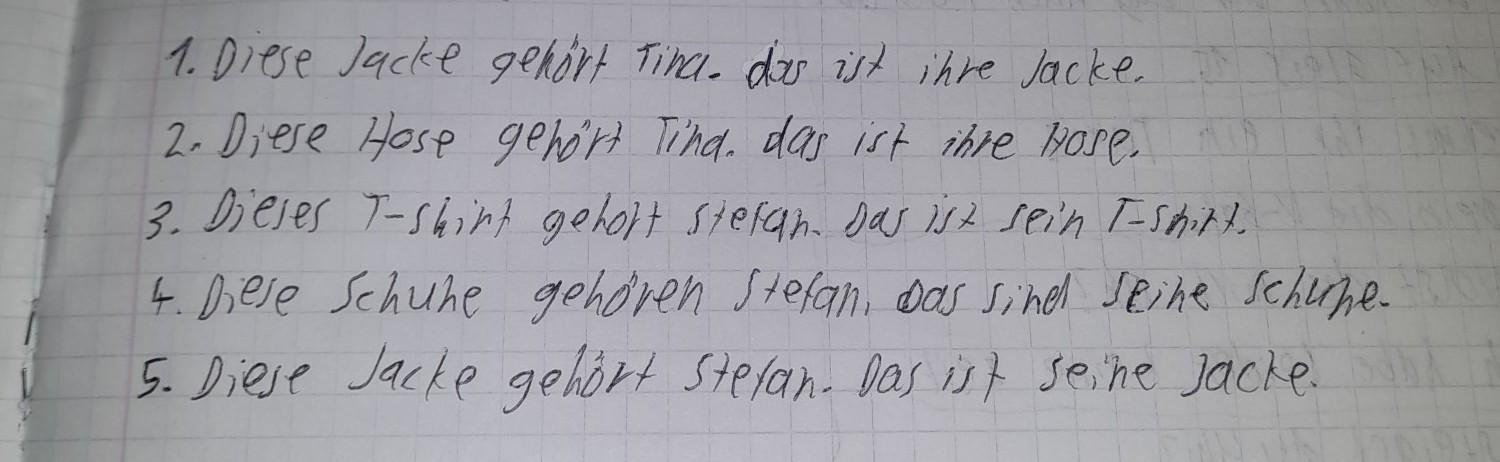 1. Diese Jacke gehört Tina. das ist ihre Jacke.
2. Diese Hose gehört Tina. das ist ihre Hose.
3. Dieses T-shirt gehört Stefan. Das ist sein T-shirt.
4. Diese Schuhe gehören Stefan. Das sind seine Schuhe.
5. Diese Jacke gehört Stefan. Das ist seine Jacke.